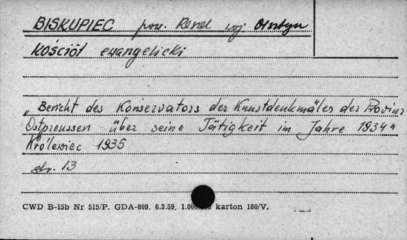 BISKUPIEC pow. Resel woj. Olsztyn
Kościół ewangelicki
„Bericht des Konservators der Kunstdenkmäler der Provinz
Ostpreussen über seine Tätigkeit im Jahre 1934"
Królewiec 1935
str. 13
CWD B-15b Nr 515/P. GDA-809. 6.3.59. 1.000 karton 180/V.